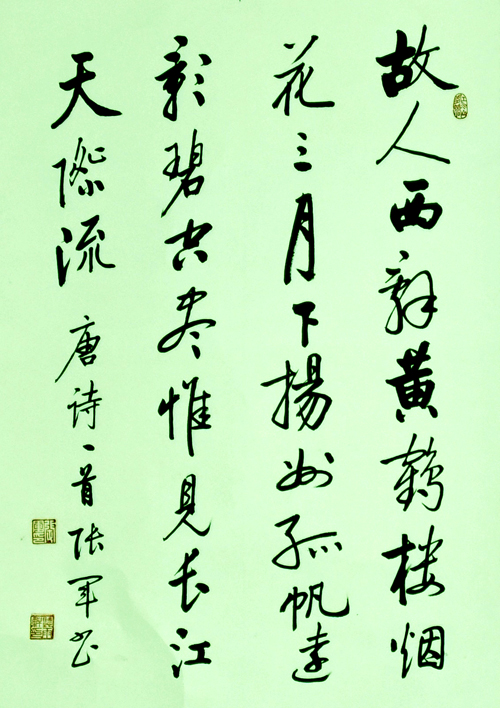 故人西辞黄鹤楼烟
花三月下揚州孤帆遠
影碧空尽惟見长江
天際流 唐诗一首张军书